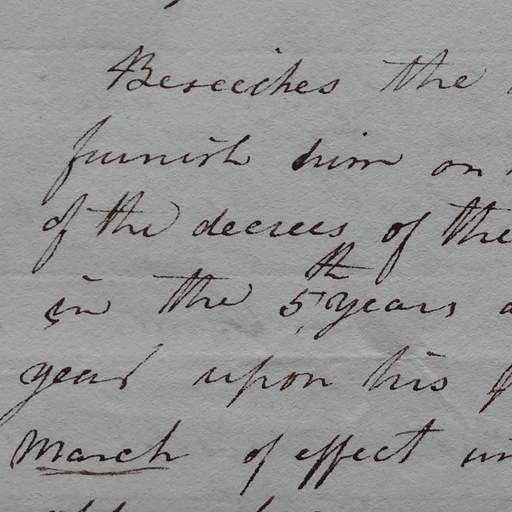 Beseeches the
furnish him on
of the decrees of the
in the 5th years
year upon his
March of effect